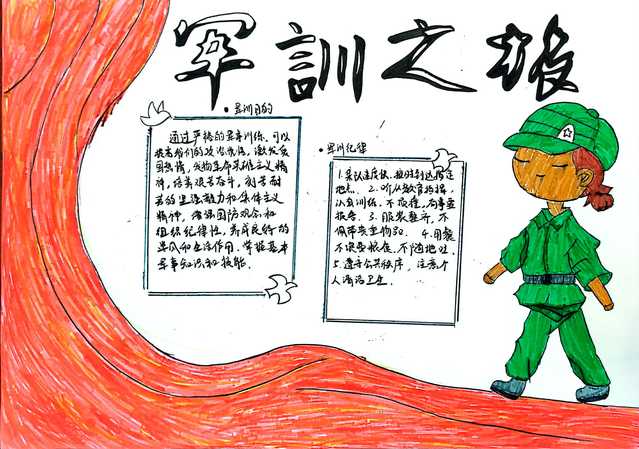 军訓之
•军训目的
通过严格的军事训练，可以
提高我们的政治觉悟，激发爱
国热情，发扬革命英雄主义精
神，培养艰苦奋斗，刻苦耐
劳的坚强毅力和集体主义
精神，增强国防观念和
组织纪律性，养成良好的
学风和生活作用，掌握基本
军事知识和技能．
•军训纪律
1.集队速度快，按时到达指定
地点．2.听从教官指挥，
认真训练，不顶撞，有事要
报告．3.服装整齐，不
佩带贵重物品．4.用餐
不浪费粮食，不随地吐．
5.遵守公共秩序，注意个
人清洁卫生．